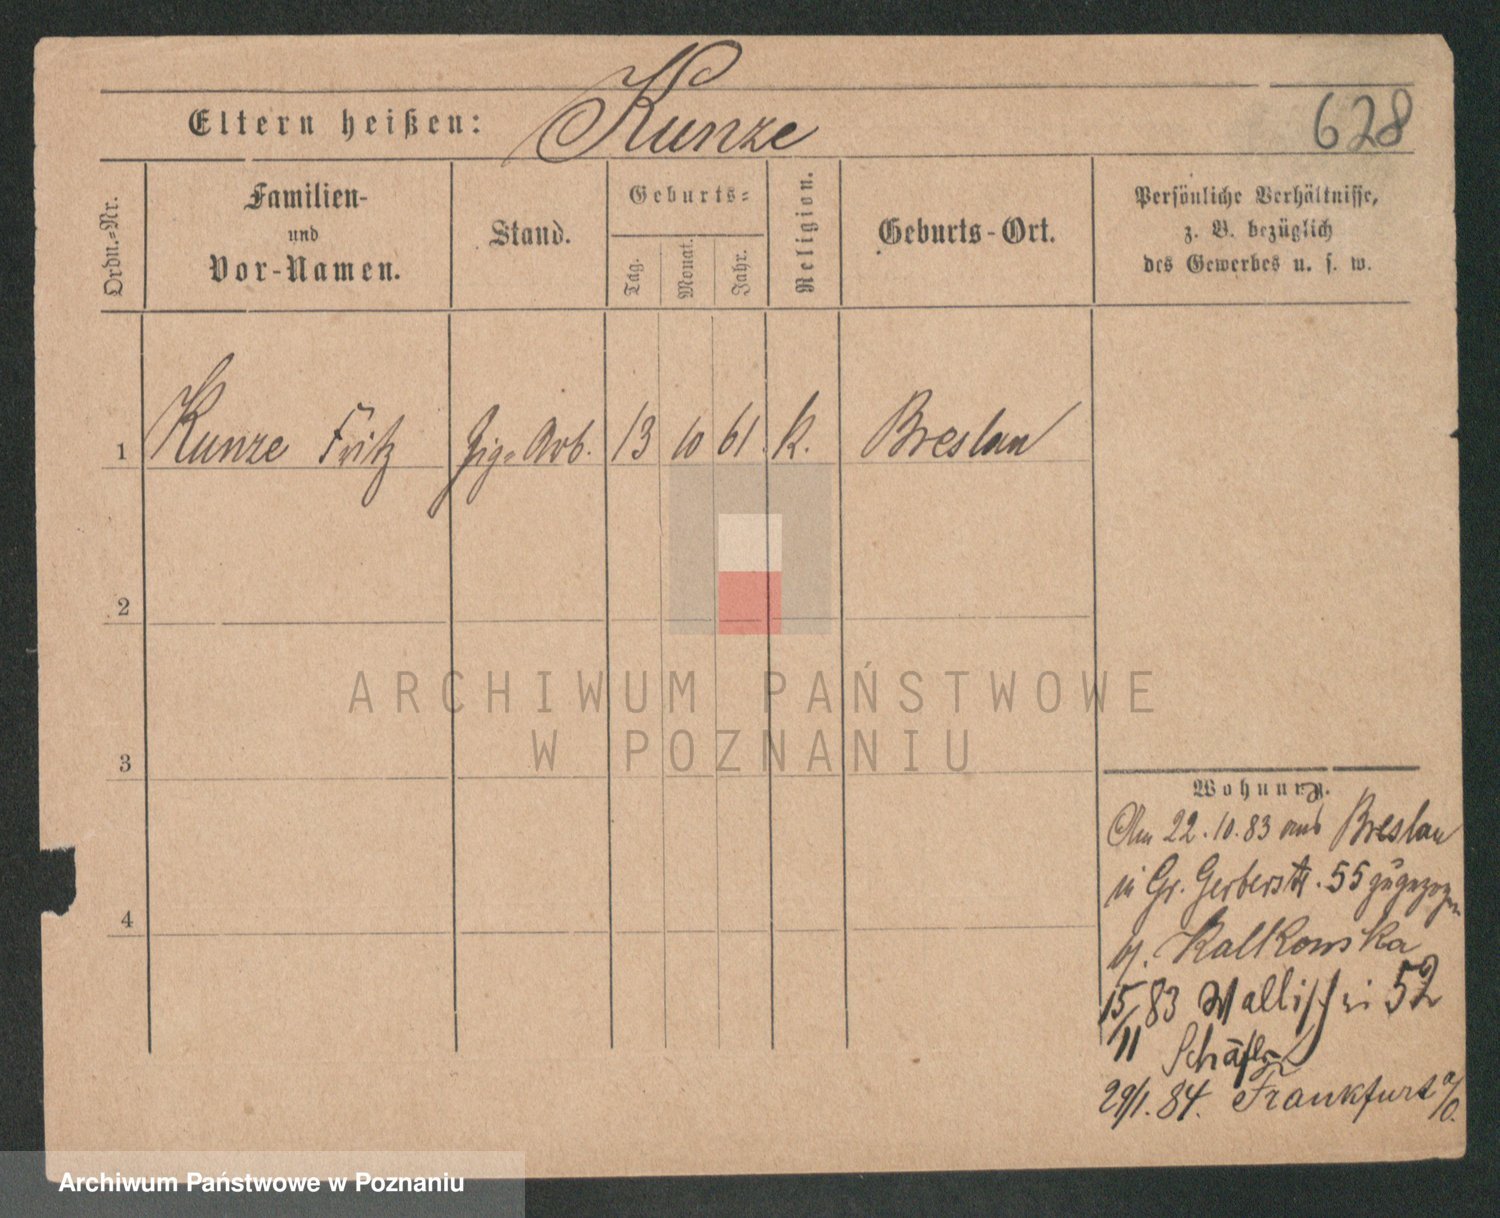 Eltern heißen: Kunze 628
Ordn.-Nr.
Familien-
und
Vor-Namen.
Stand.
Geburts-
Tag.
Monat.
Jahr.
Religion.
Geburts-Ort.
Persönliche Verhältnisse,
z. B. bezüglich
des Gewerbes u. s. w.
1 Kunze Fritz Zig. Arb. 13 10 61. k. Breslau
2
3
4
ARCHIWUM PAŃSTWOWE
W POZNANIU
Wohnung.
Am 22.10.83 aus Breslau
in Gr. Gerberstr. 55 zugezogen
b. Kalkowska
15/11 83 Wallischei 52
29/1. 84. Frankfurt a/O.
Archiwum Państwowe w Poznaniu